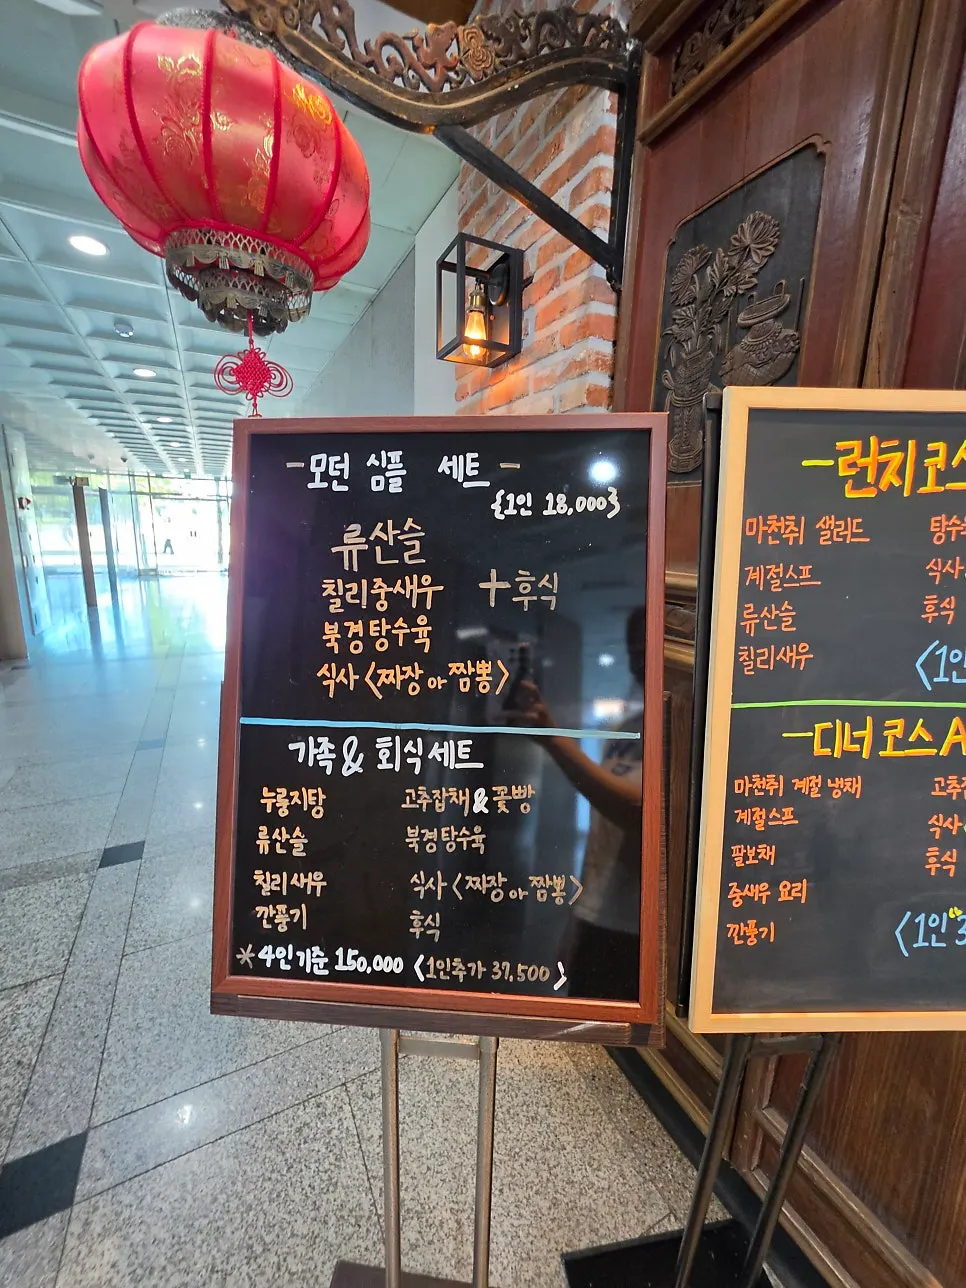 -모던 심플 세트-
{1인 18,000}
류산슬
칠리중새우 +후식
북경탕수육
식사<짜장 or 짬뽕>
가족& 회식세트
누룽지탕 고추잡채&꽃빵
류산슬 북경탕수육
칠리새우 식사<짜장 or 짬뽕>
깐풍기 후식
*4인기준 150,000 <1인추가 37,500>
-런치코스
마천취 샐러드 탕수
계절스프 식사
류산슬 후식
칠리새우 <1인
-디너코스A
마천취 계절냉채 고추
계절스프 식사
팔보채 후식
중새우 요리
깐풍기 <1인 3